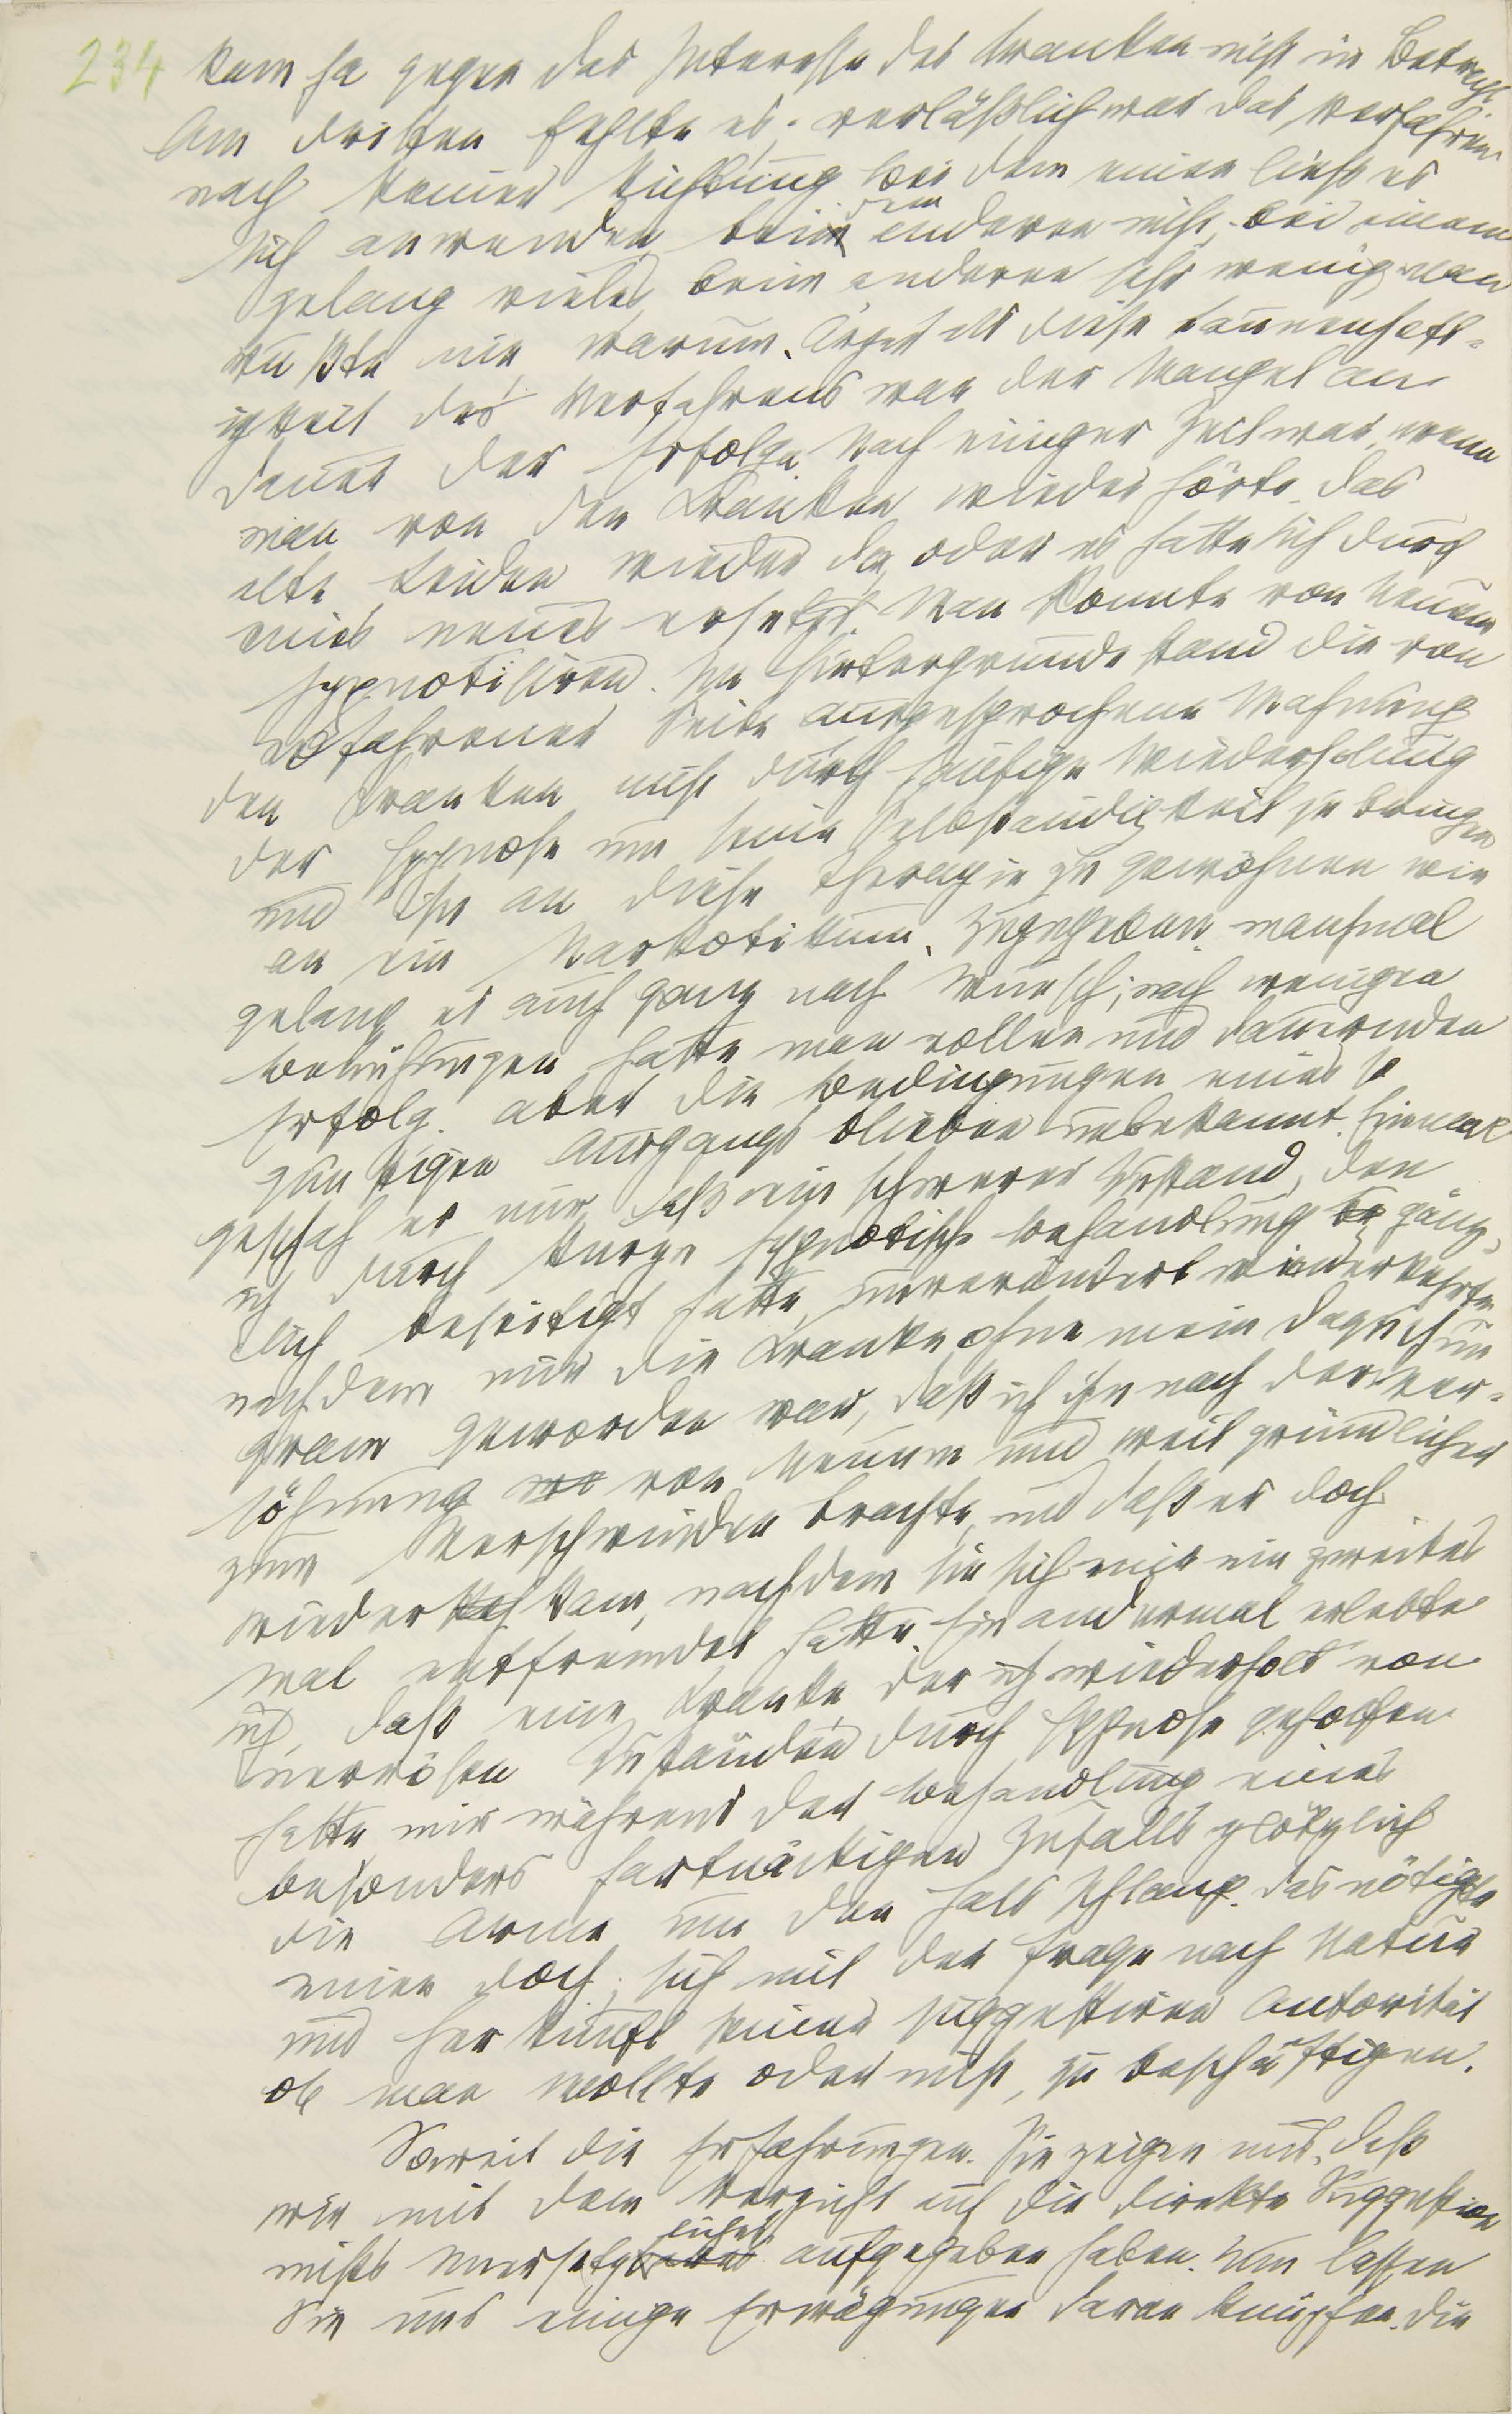 234 kam ja gegen das Interesse des Kranken nicht in Betracht.
Am dritten fehlte es; verläßlich war das Verfahren
nach keiner Richtung bei dem einen ließ es
sich anwenden, beim anderen nicht, bei einem
dem
gelang vieles, beim anderen sehr wenig, man
wußte nie, warum. Ärger als diese Launenhaft-
igkeit des Verfahrens war der Mangel an
Dauer der Erfolge. Nach einiger Zeit war, wenn
man von den Kranken wieder hörte, das
alte Leiden wieder da, oder es hatte sich durch
eines neues ersetzt. Man konnte von Neuem
hypnotisiren. Im Hintergrunde stand die von
erfahrener Seite ausgesprochene Mahnung
den Kranken nicht durch häufige Wiederholung
der Hypnose um seine Selbständigkeit zu bringen
und ihn an diese Therapie zu gewöhnen wie
an ein Narkotikum. Zugegeben, manchmal
gelang es auch ganz nach Wunsch; nach wenigen
Bemühungen hatte man vollen und dauernden
Erfolg. aber die Bedingungen eines so
günstigen Ausgangs blieben unbekannt. Einmal
geschah es mir, daß ein schwerer Zustand, den
ich durch kurze hypnotische Behandlung gänz-
lich beseitigt hatte, unverändert wiederkehrte
nachdem mir die Kranke ohne mein Dazuthun
gram geworden war, daß ich ihn nach der Ver-
söhnung von Neuem und weit gründlicher
zum Verschwinden brachte, und daß er doch
wieder kam, nachdem sie sich mir ein zweites
mal entfremdet hatte. Ein andermal erlebte
ich, daß eine Kranke, der ich wiederholt von
nervösen Zuständen durch Hypnose geholfen
hatte, mir während der Behandlung eines
besonders hartnäckigen Zufalls plötzlich
die Arme um den Hals schlang. Das nötigte
einen doch, sich mit der Frage nach Natur
und Herkunft seiner suggestiven Autorität
ob man wollte oder nicht, zu beschäftigen.
Soweit die Erfahrungen. Sie zeigen uns, daß
wir mit dem Verzicht auf die direkte Suggestion
liches
nichts Unersetz aufgegeben haben. Nun lassen
Sie uns einige Erwägungen daran knüpfen. Die